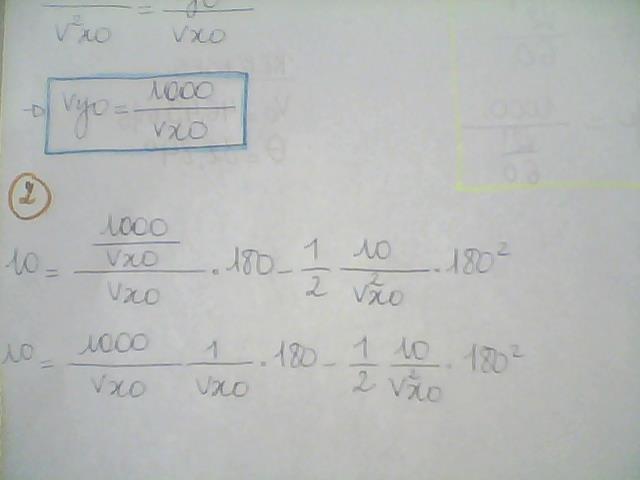 v²x0 = vx0
→ vy0 = 1000 / vx0
2
10 = (1000 / vx0) / vx0 · 180 - 1/2 10 / v²x0 · 180²
10 = 1000 / vx0 1 / vx0 · 180 - 1/2 10 / v²x0 · 180²